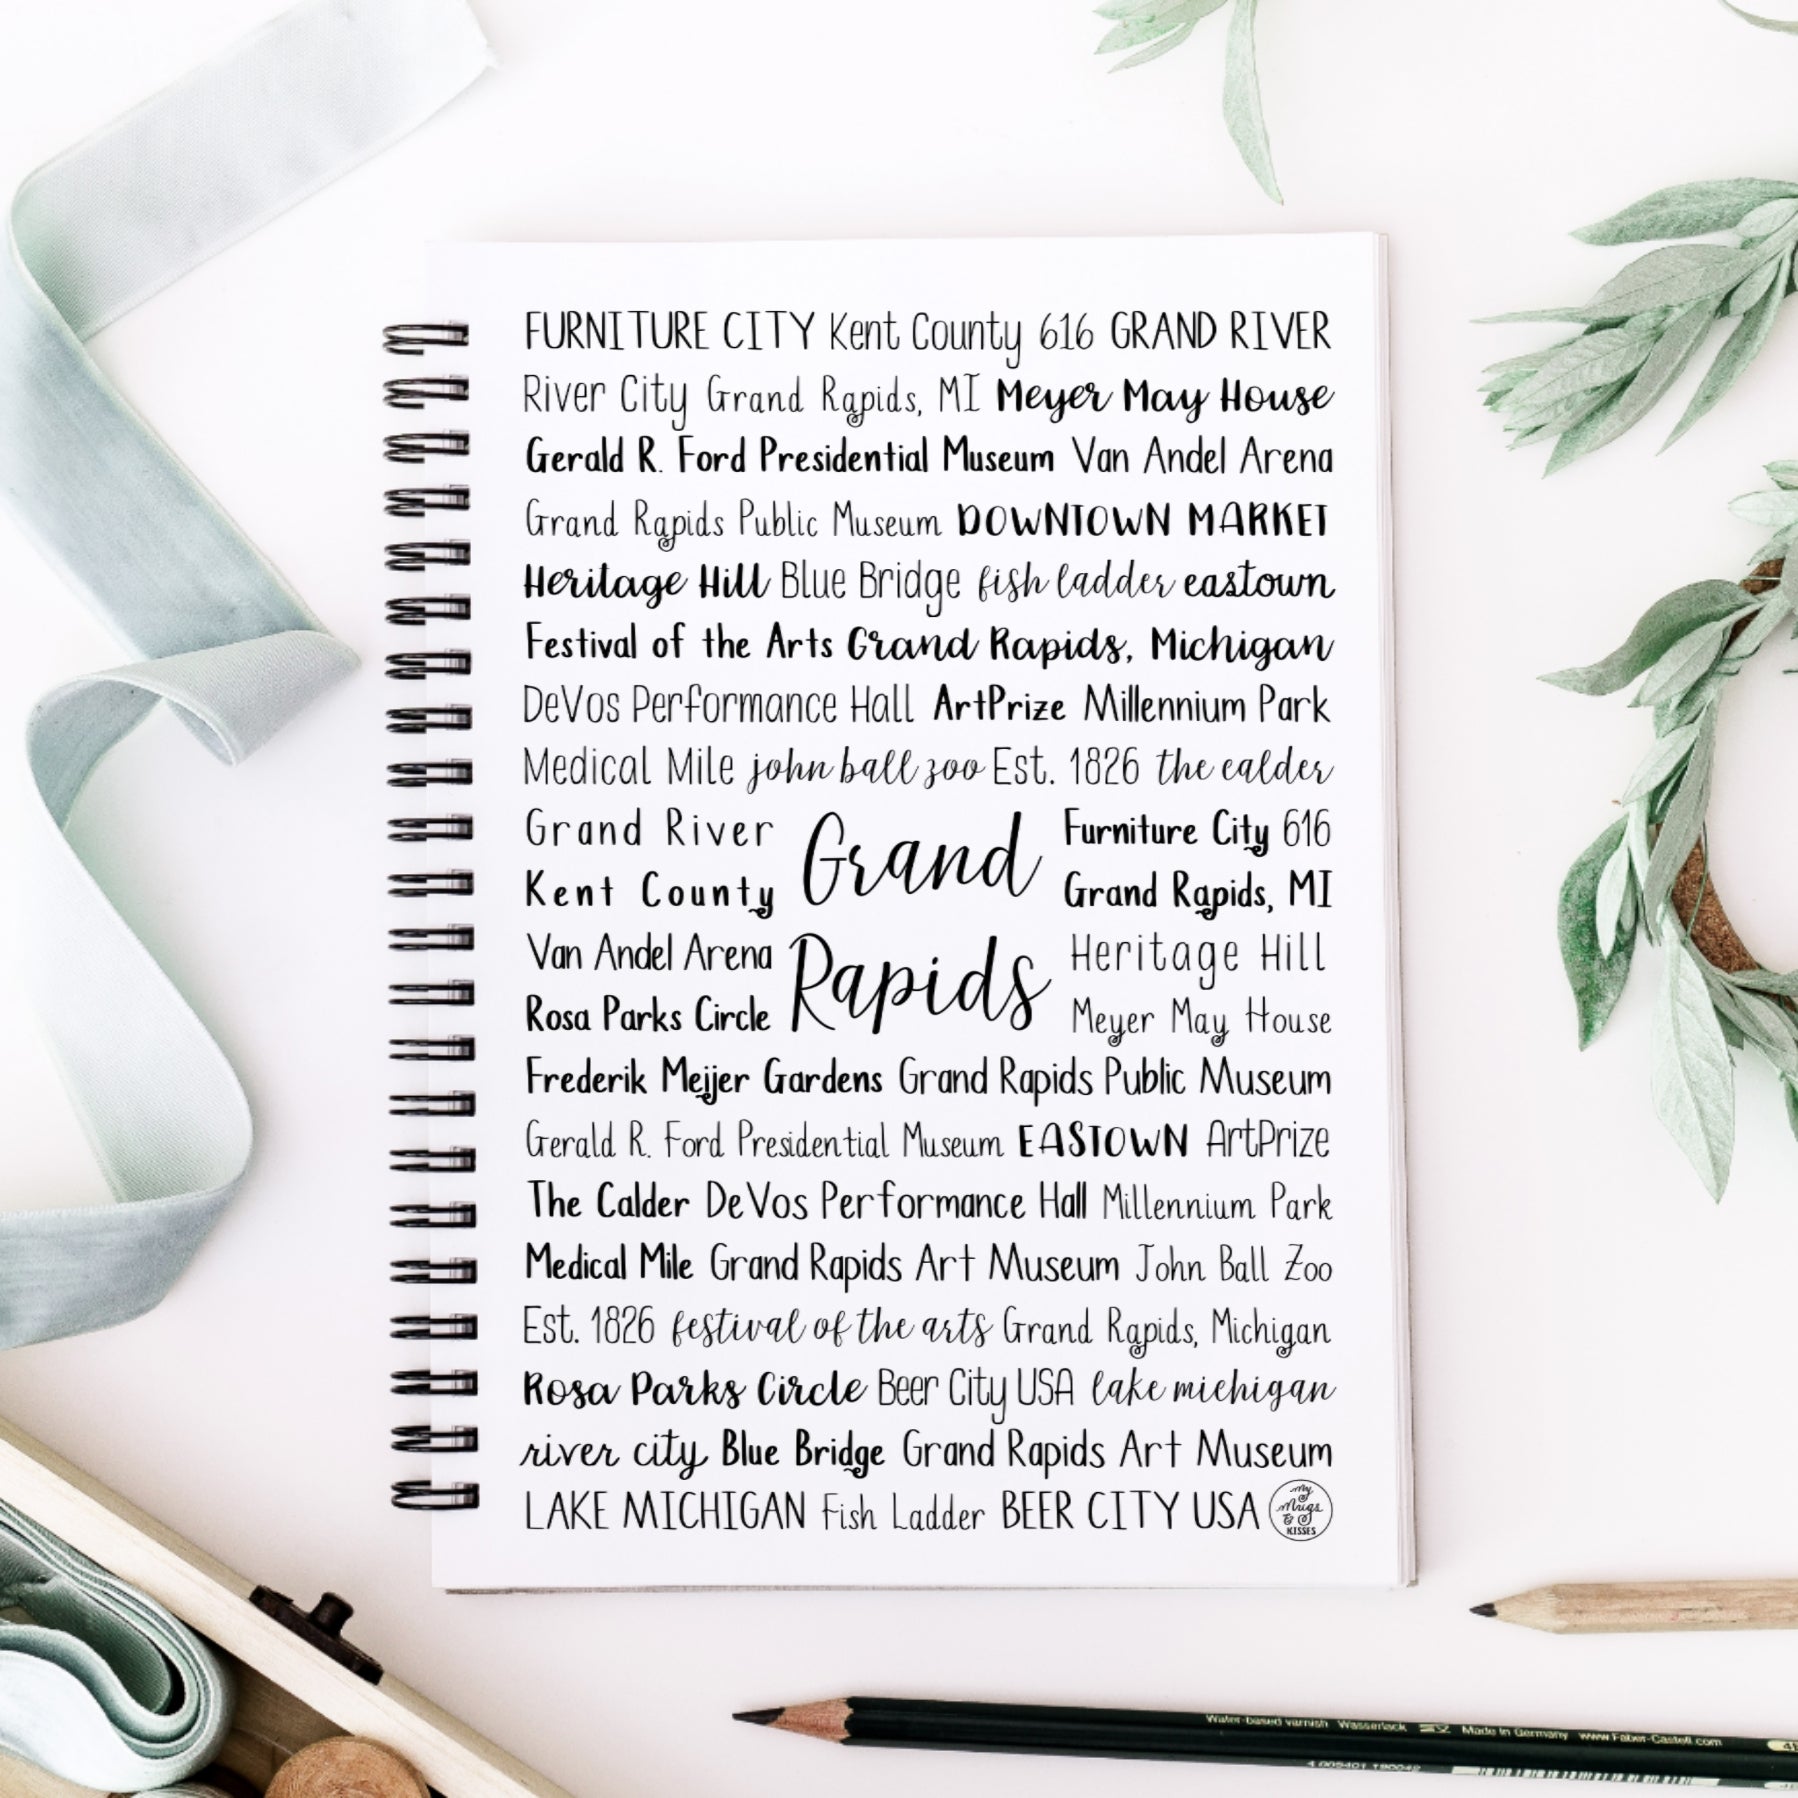 FURNITURE CITY Kent County 616 GRAND RIVER
River City Grand Rapids, MI Meyer May House
Gerald R. Ford Presidential Museum Van Andel Arena
Grand Rapids Public Museum DOWNTOWN MARKET
Heritage Hill Blue Bridge fish ladder eastown
Festival of the Arts Grand Rapids, Michigan
DeVos Performance Hall ArtPrize Millennium Park
Medical Mile john ball zoo Est. 1826 the calder
Grand River
Kent County
Van Andel Arena
Rosa Parks Circle
Grand
Rapids
Furniture City 616
Grand Rapids, MI
Heritage Hill
Meyer May House
Frederik Meijer Gardens Grand Rapids Public Museum
Gerald R. Ford Presidential Museum EASTOWN ArtPrize
The Calder DeVos Performance Hall Millennium Park
Medical Mile Grand Rapids Art Museum John Ball Zoo
Est. 1826 festival of the arts Grand Rapids, Michigan
Rosa Parks Circle Beer City USA lake michigan
river city Blue Bridge Grand Rapids Art Museum
LAKE MICHIGAN Fish Ladder BEER CITY USA
My
Mugs
&
KISSES
Water-based varnish Wasserlack Made in Germany www.Faber-Castell.com
4 005401 190042